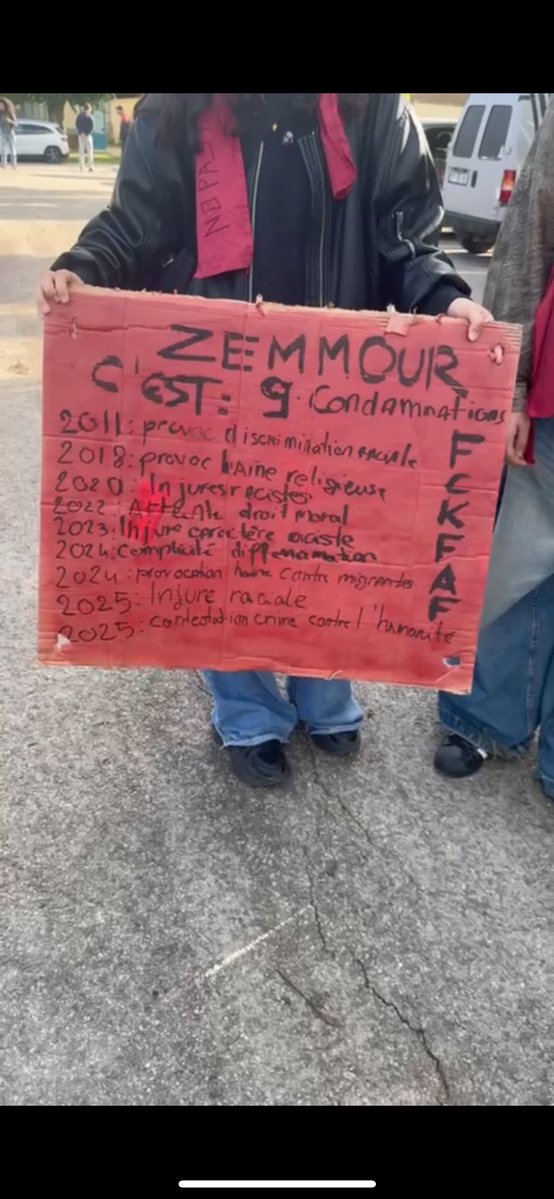 NO PA
ZEMMOUR
C'EST: 9 Condamnations
2011: provoc discrimination raciale
2018: provoc haine religieuse
2020: Injures racistes
2022: Atteinte droit moral
2023: Injure caractère raciste
2024: complicité diffamamation
2024: provocation haine contre migrantes
2025: Injure raciale
2025: contestation crime contre l'humanité
FCK FAF